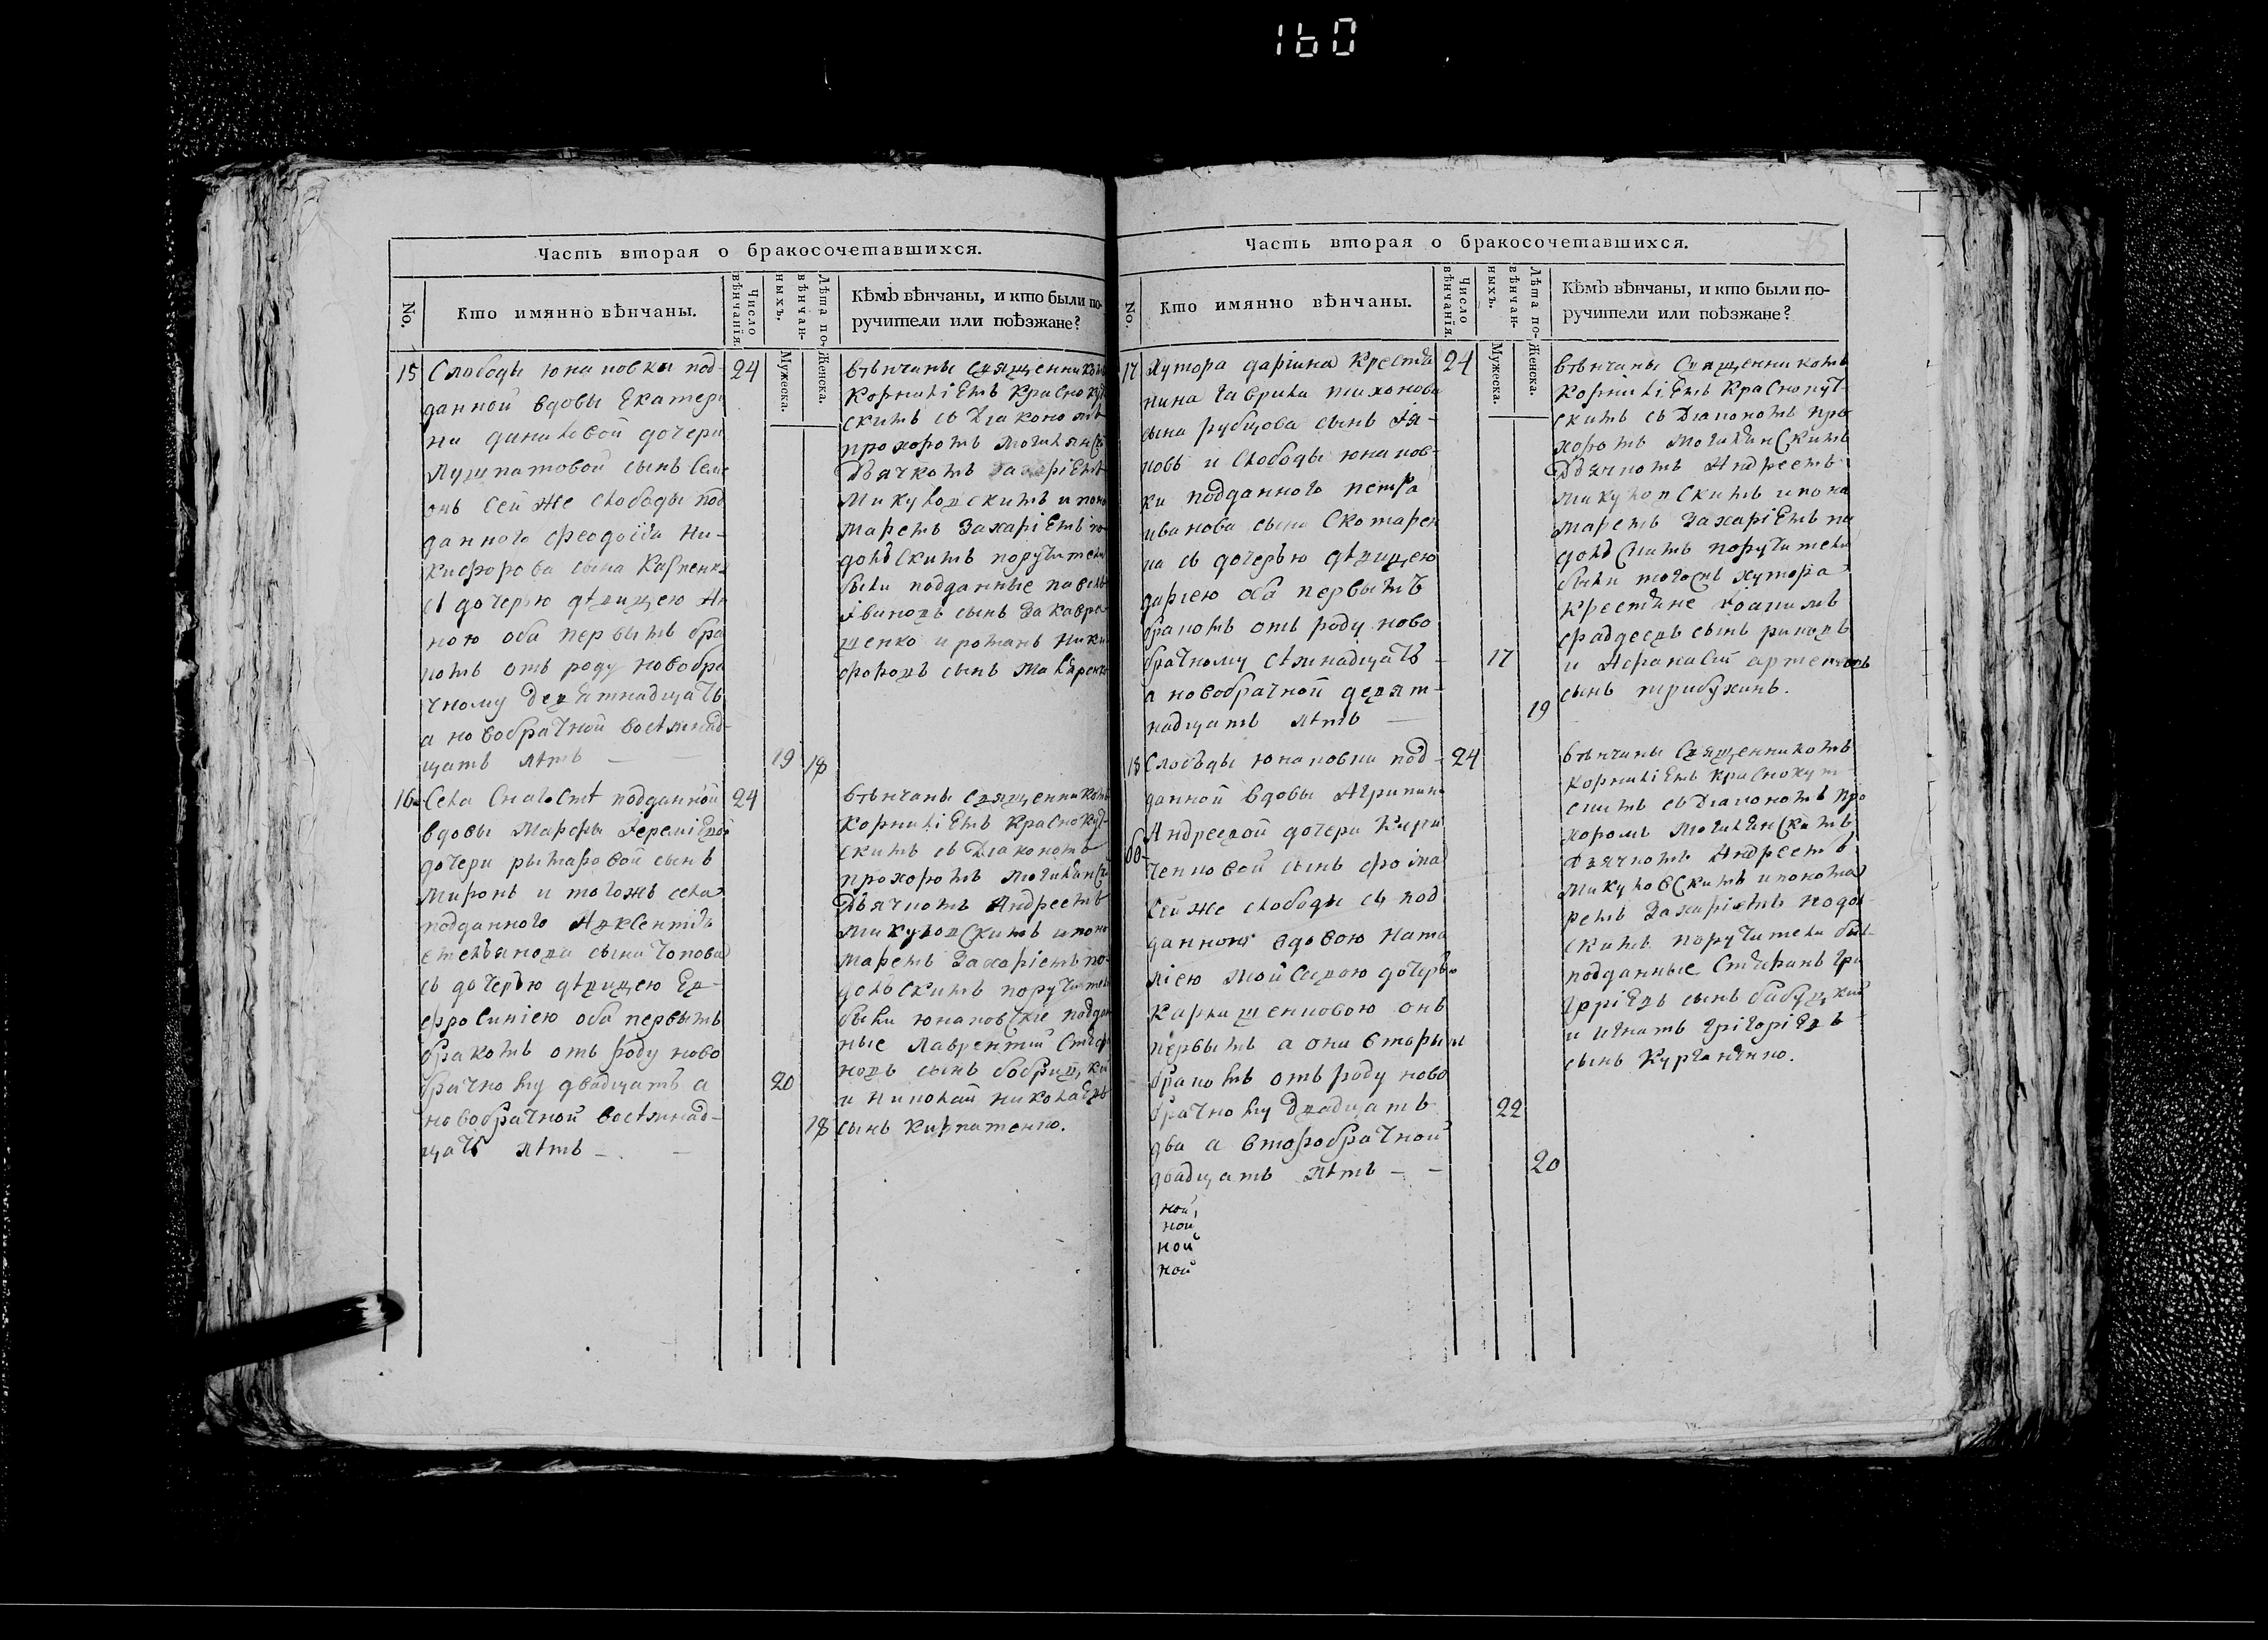 160
Часть вторая о бракосочетавшихся.
No.
Кто имянно вѣнчаны.
Число вѣнчанія.
Лѣта повѣнчанныхъ.
Мужеска.
Женска.
Кѣмъ вѣнчаны, и кто были по-
ручители или поѣзжане?
15
Слободы юнаповки под-
данной вдовы Екатери
ны даниловой дочери
сынъ Семе
онъ сей же слободы под
данного феодосіа Ни-
кифорова сына Карпенка
съ дочерью дѣвицею Ан
ною оба первымъ бра
комъ отъ роду новобра
чному девятнадцать
а новобрачной восѣмнад-
цать лѣтъ — —
24
19
18
вѣнчаны священникомъ
Корниліемъ Краснокут
скимъ съ діакономъ
прохоромъ могилянск
Дьячкомъ
микуловскимъ и поно
маремъ Захаріемъ по
дольскимъ поручители
были подданные павелъ
Ивановъ сынъ
щенко и романъ Ники
форовъ сынъ
16
Села подданной
вдовы Марфы Іереміевой
дочери рымаровой сынъ
Миронъ и тогожъ села
подданного Авксентія
емельянова сына Чопова
съ дочерью дѣвицею Ев-
фросиніею оба первымъ
бракомъ отъ роду ново
брачному двадцать а
новобрачной восѣмнад-
цать лѣтъ — —
24
20
18
вѣнчаны священникомъ
Корниліемъ Краснокут-
скимъ съ діакономъ
прохоромъ могилянск
Дьячкомъ Андреемъ
микуловскимъ и поно
маремъ Захаріемъ по-
дольскимъ поручители
были юнаповскіе поддан
ные Лаврентій Стефа
новъ сынъ
и Николай Николаевъ
сынъ Кирпатенко.
Часть вторая о бракосочетавшихся.
No.
Кто имянно вѣнчаны.
Число вѣнчанія.
Лѣта повѣнчанныхъ.
Мужеска.
Женска.
Кѣмъ вѣнчаны, и кто были по-
ручители или поѣзжане?
17
Хутора дарьина Крестья
нина Гаврила тихонова
сына рубцова сынъ Ия-
ковъ и слободы юнапов-
ки подданного петра
иванова сына Скотарен
ка съ дочерью дѣвицею
даріею оба первымъ
бракомъ отъ роду ново
брачному сѣмнадцать —
а новобрачной девят-
надцать лѣтъ —
24
17
19
вѣнчаны Священникомъ
Корниліемъ Краснокут-
скимъ съ діакономъ про
хоромъ Могилянскимъ
Дьячкомъ Андреемъ
микуловскимъ и поно
маремъ Захаріемъ по
дольскимъ поручители
были тогожъ хутора
Крестьяне Іоакимъ
фаддеевъ сынъ
и Афанасій артемовъ
сынъ трибухинъ.
18
Слободы юнаповки под-
данной вдовы Агрипины
Андреевой дочери Кири
ченковой сынъ фома
сей же слободы съ под
данною вдовою Ната
ліею Мойсеевою дочерью
онъ
первымъ а она вторымъ
бракомъ отъ роду ново
брачному двадцать
два а второбрачной
двадцать лѣтъ — —
24
22
20
вѣнчаны священникомъ
Корниліемъ Краснокут
скимъ съ діакономъ про
хоромъ Могилянскимъ
Дьячкомъ Андреемъ
микуловскимъ и понома
ремъ Захаріемъ подол-
скимъ поручители был-
подданные Стефанъ Гри
горіевъ сынъ
и Игнатъ григоріевъ
сынъ
ной
ной
ной
ной